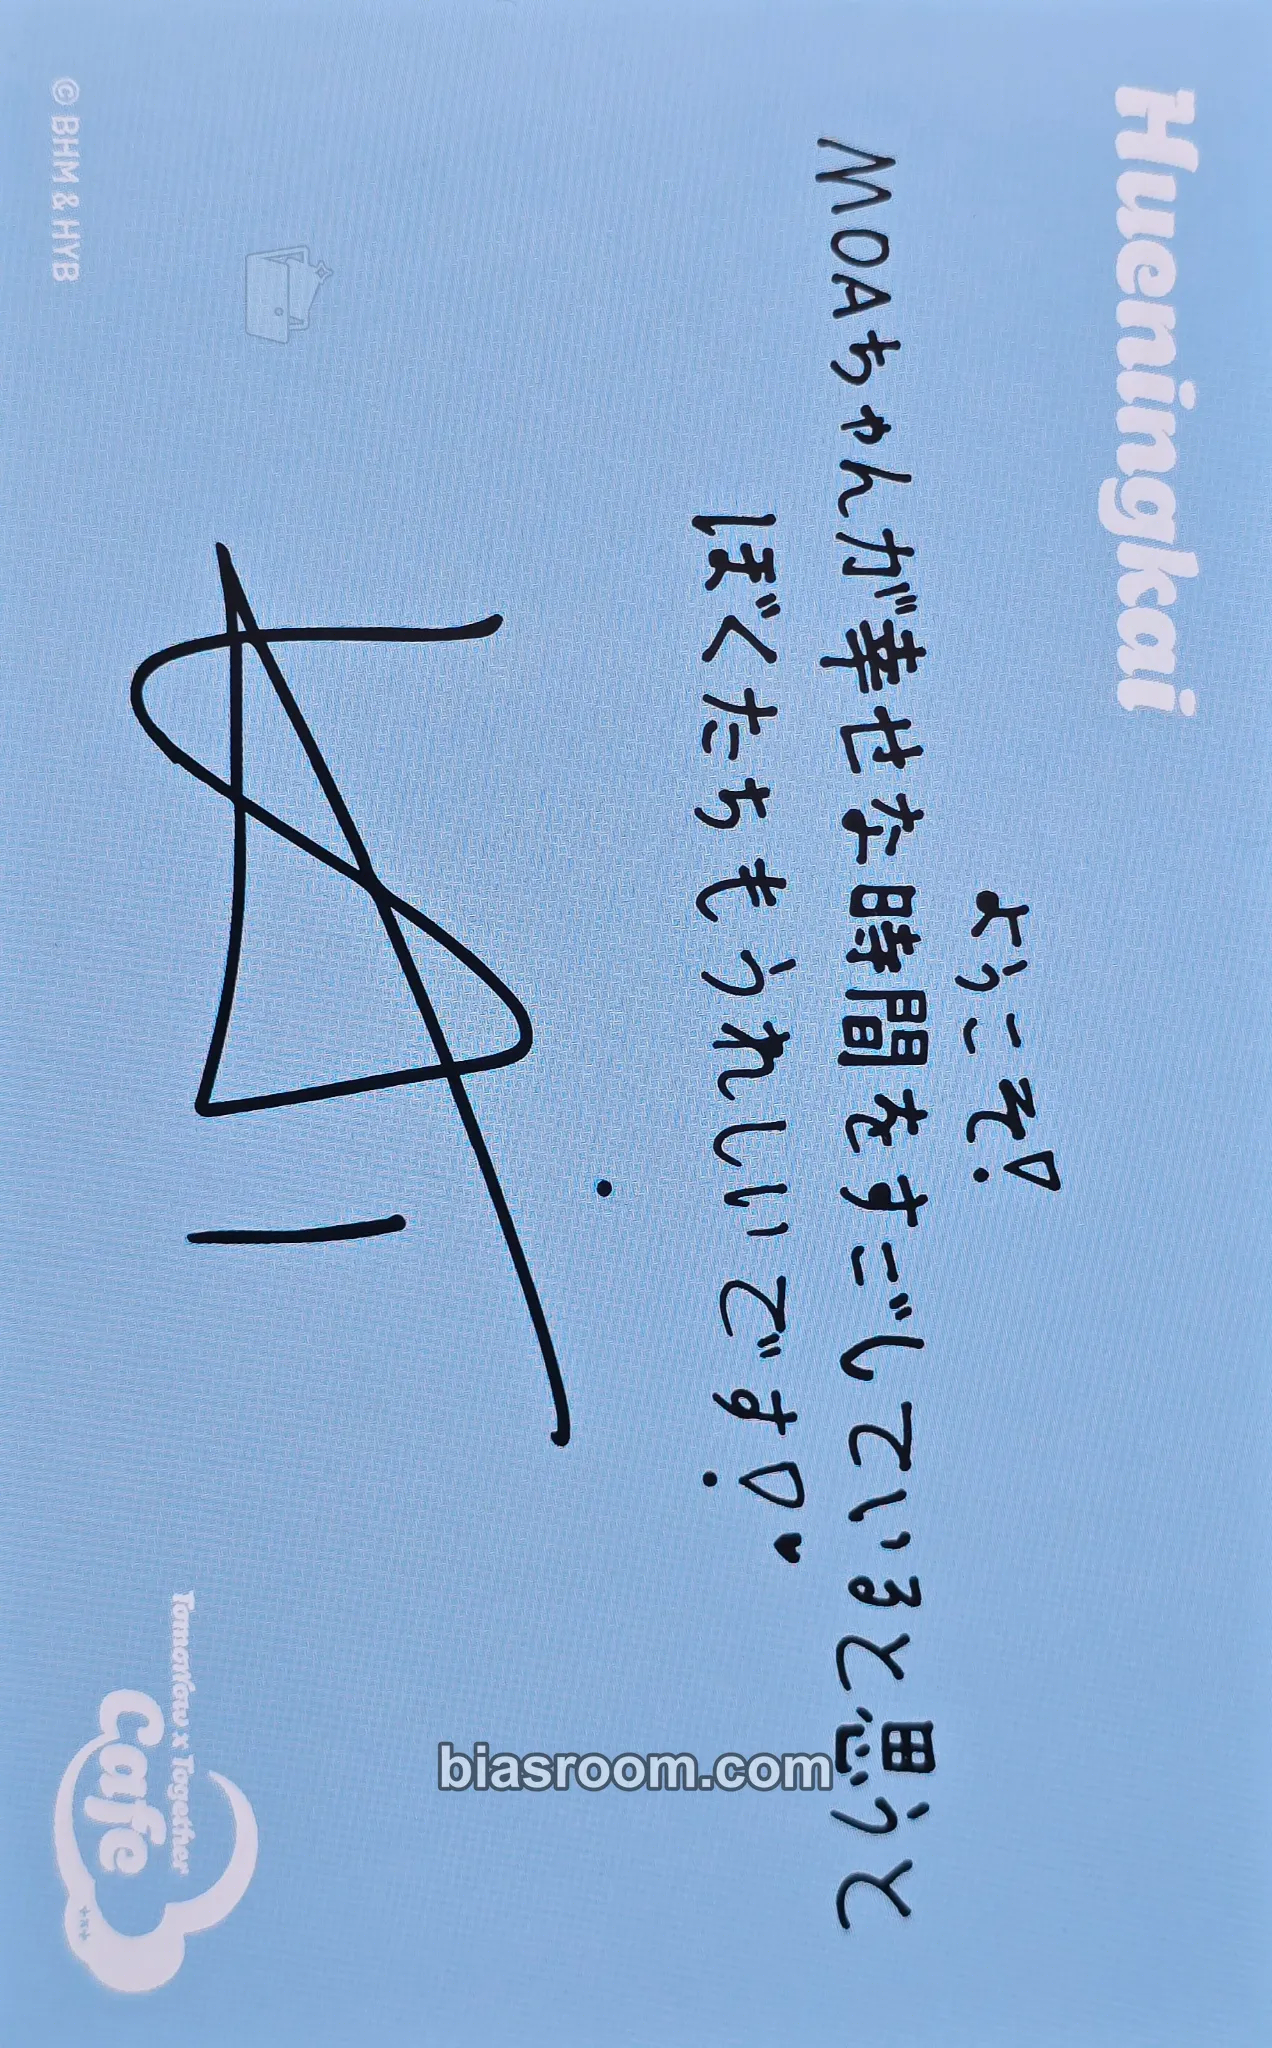 Hueningkai
ようこそ!
MOAちゃんが幸せな時間をすごしていると思うと
ぼくたちもうれしいです!♥
© BHM & HYB
Tomorrow x Together
Cafe
biasroom.com